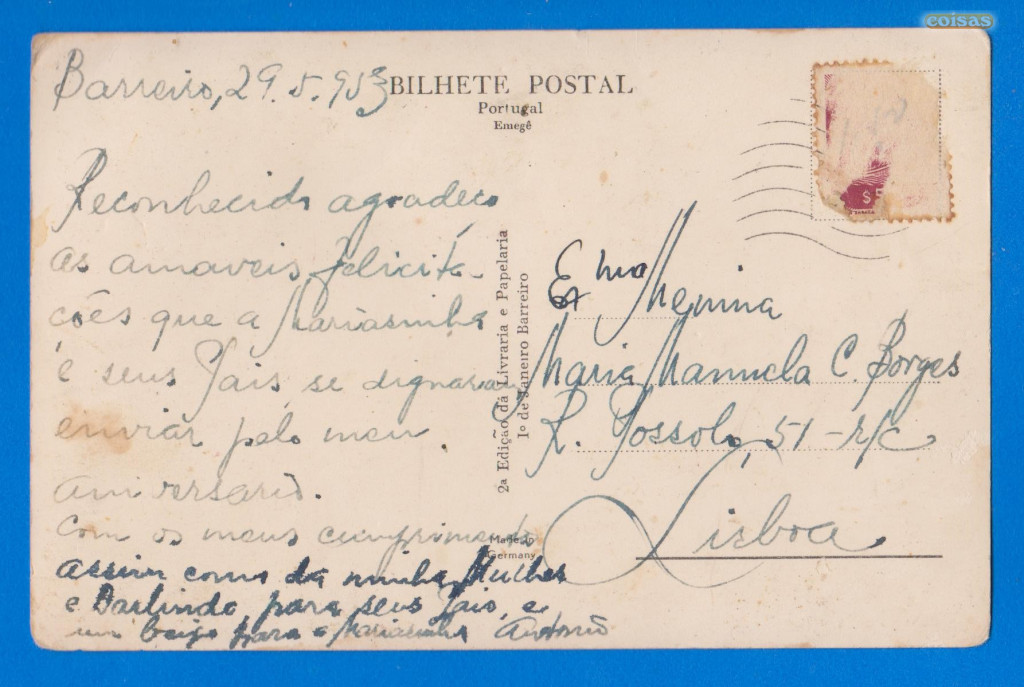 coisas
Barreiro, 29.5.953
BILHETE POSTAL
Portugal
Emegê
Reconhecido agradeço
as amaveis felicita
ções que a Mariasinha
e seus Pais se dignaram
enviar pelo meu
aniversário.
Com os meus cumprimentos
assim como da minha Mulher
e Darlindo, para seus Pais, e
um beijo para a Mariasinha António
2ª Edição da Livraria e Papelaria
1º de Janeiro Barreiro
Made in
Germany
Exma Menina
Maria Manuela C. Borges
R. Possolo, 51 - r/c
Lisboa
$5